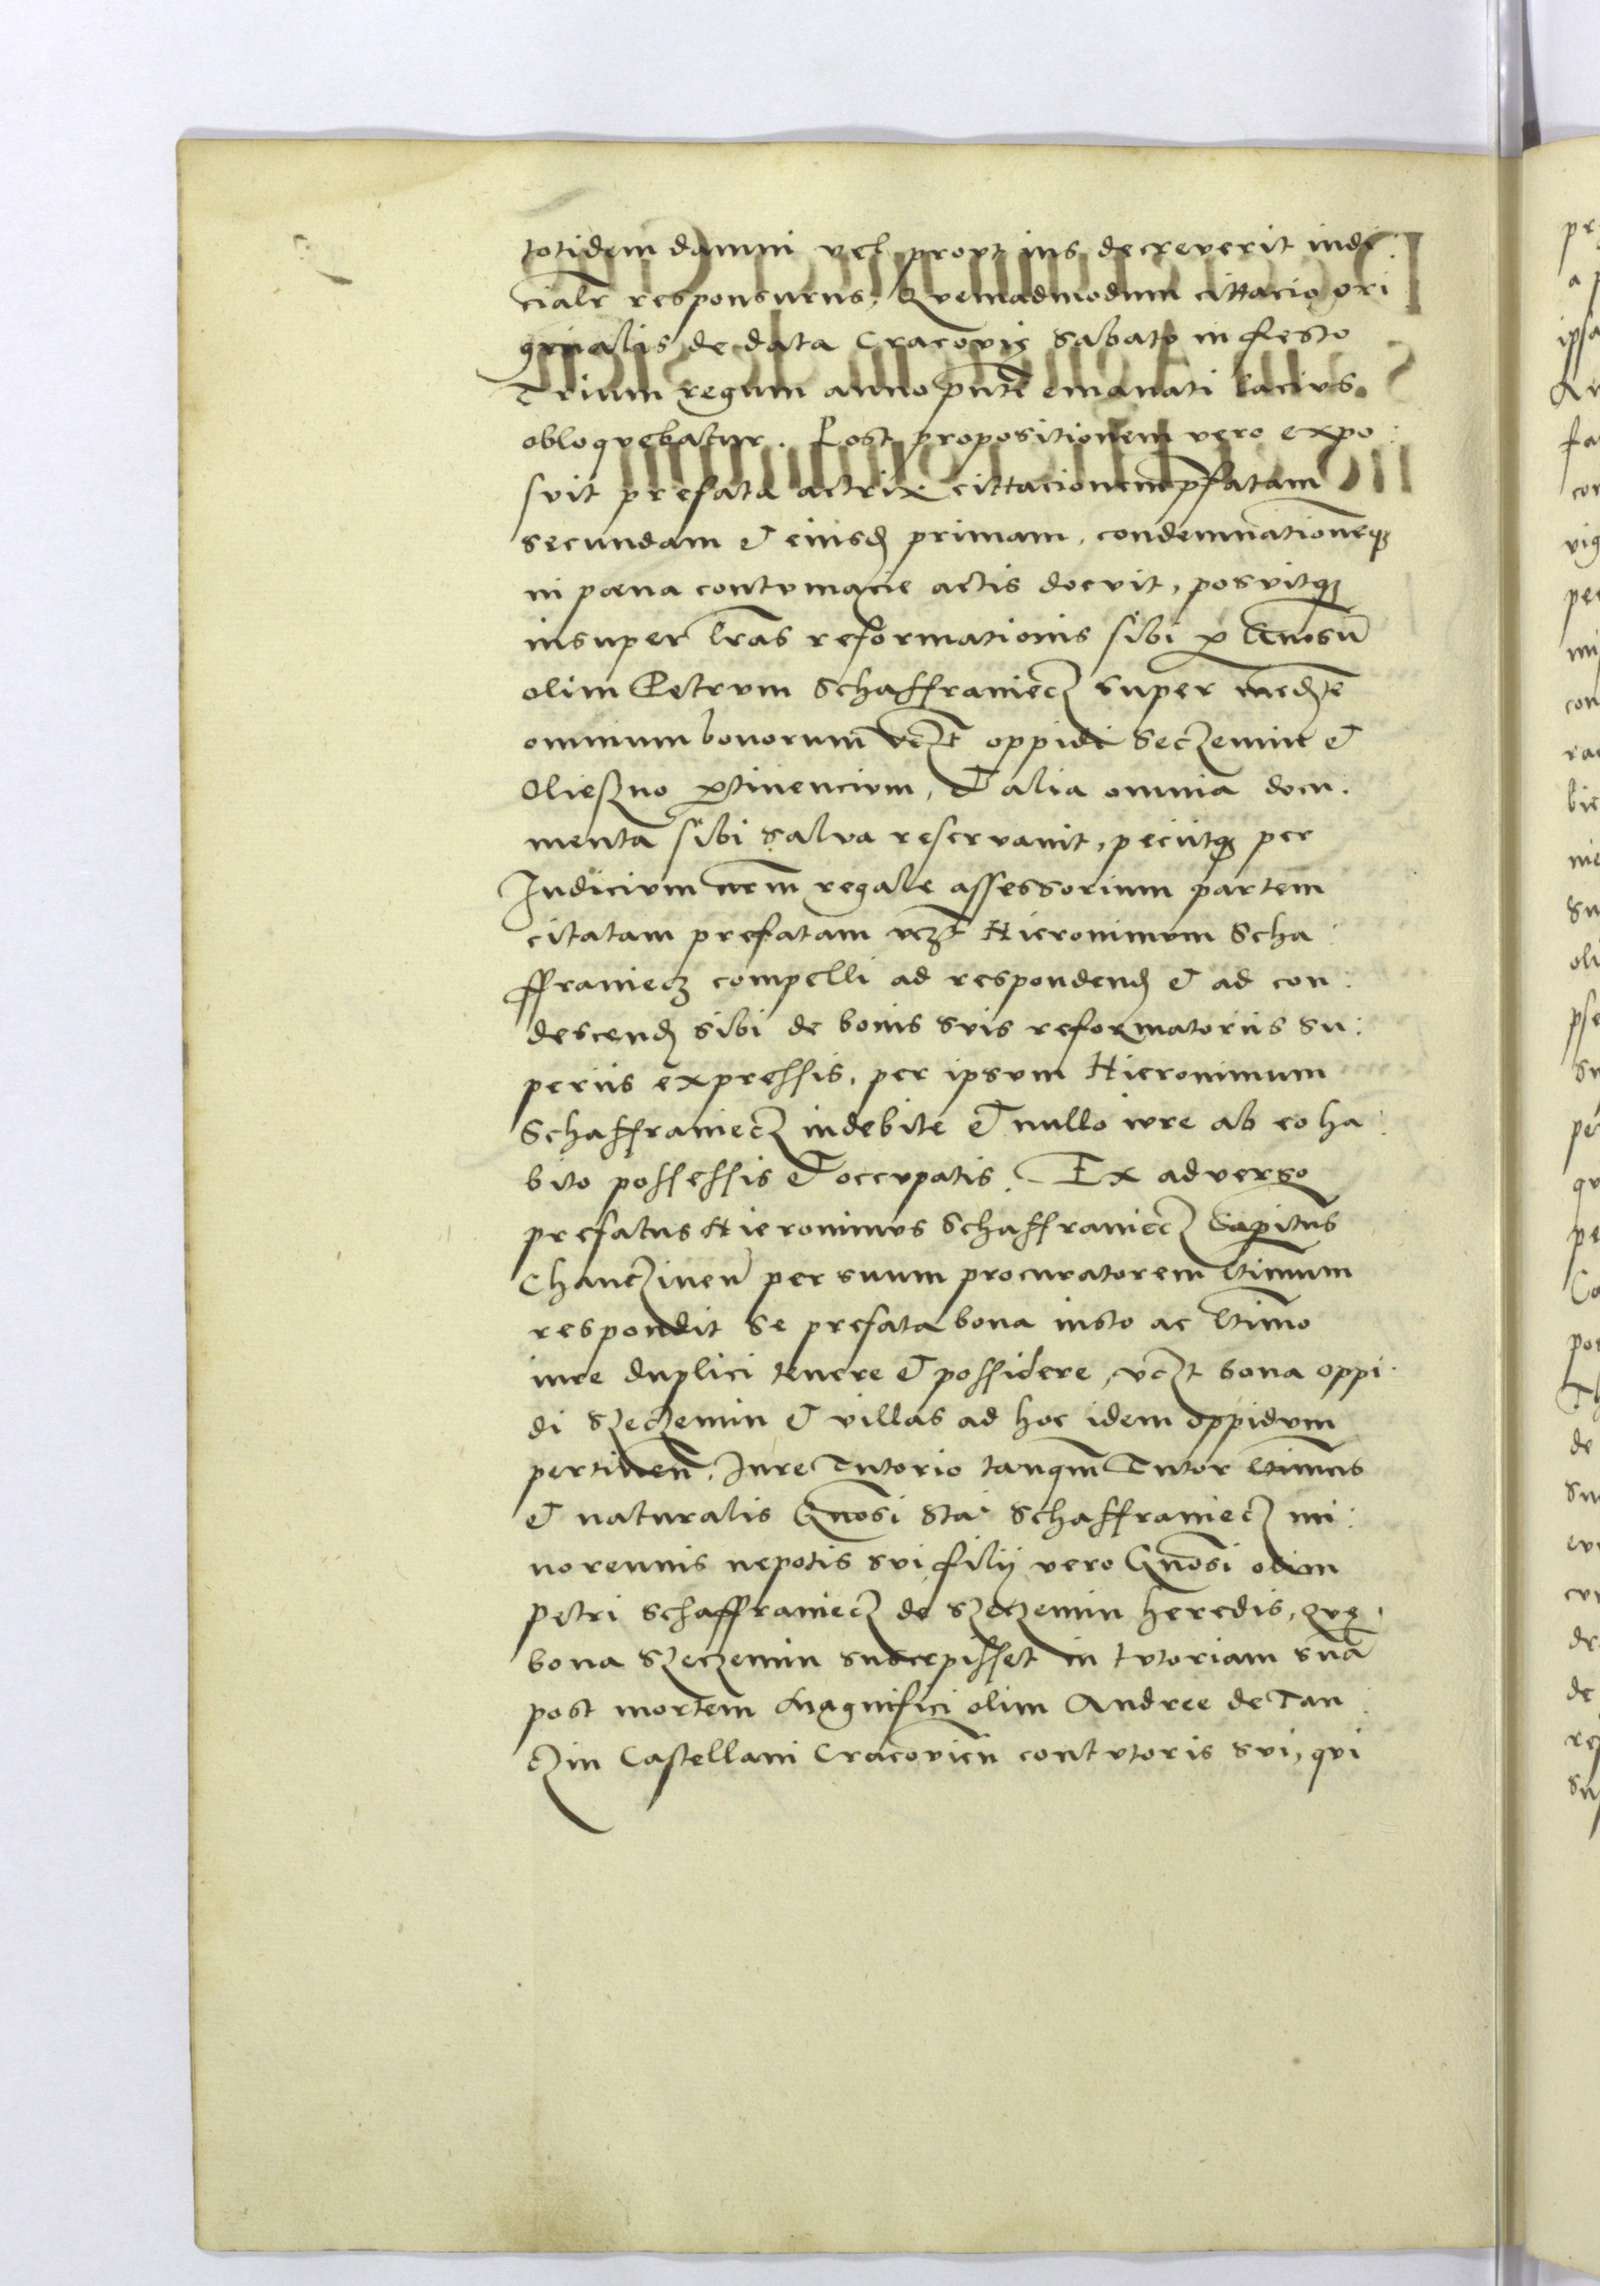 totidem damni vel provt ius decreverit iudi:
cialr responsurus, Qvemadmodum cittacio ori
ginalis de data Cracovię Sabato in festo
Trium regum anno pñte emanati lacivs
obloqvebatur. Post propositionem vero expo:
svit prefata actrix cittacionem pfatam
secundam et eiusdę primam, condemnationeqз
in pœna contvmacie actis docvit, posvitqз
insuper lras reformationis sibi p Gnosũ
olim Petrvm Schaffraniecz super medte
omnium bonorum vczt oppidi Seczemin et
Olieszno ptinencivm, et alia omnia docu:
menta sibi salva reservavit, peciitqз per
Judicivm nrm regale assessorium partem
citatam prefatam vczt Hieronimvm Scha:
ffraniecz compelli ad respondendę et ad con:
descendę sibi de bonis svis reformatoriis su:
periis expressis, per ipsvm Hieronimum
Schaffraniecz indebite et nullo ivre ab eo ha:
bito possessis et occvpatis. Ex adverso
prefatus Hieronimvs Schaffraniecz Capitus
Chanczinen per suum procuratorem ltimum
respondit se prefata bona iusto ac ltimo
iure duplici tenere et possidere, vczt bona oppi:
di Szeczemin et villas ad hoc idem oppidvm
pertinen, Jure Tutorio tanqm Tutor ltimus
et naturalis Gnosi Sta: Schaffraniecz mi:
norennis nepotis svi filij vero Gnosi olim
Petri Schaffraniecz de Szeczemin heredis, Qvę
bona Szeczemin suscepisset in tvtoriam suã
post mortem Magnifici olim Andree de Tan:
czin Castellani Cracovien contvtoris svi, qvi